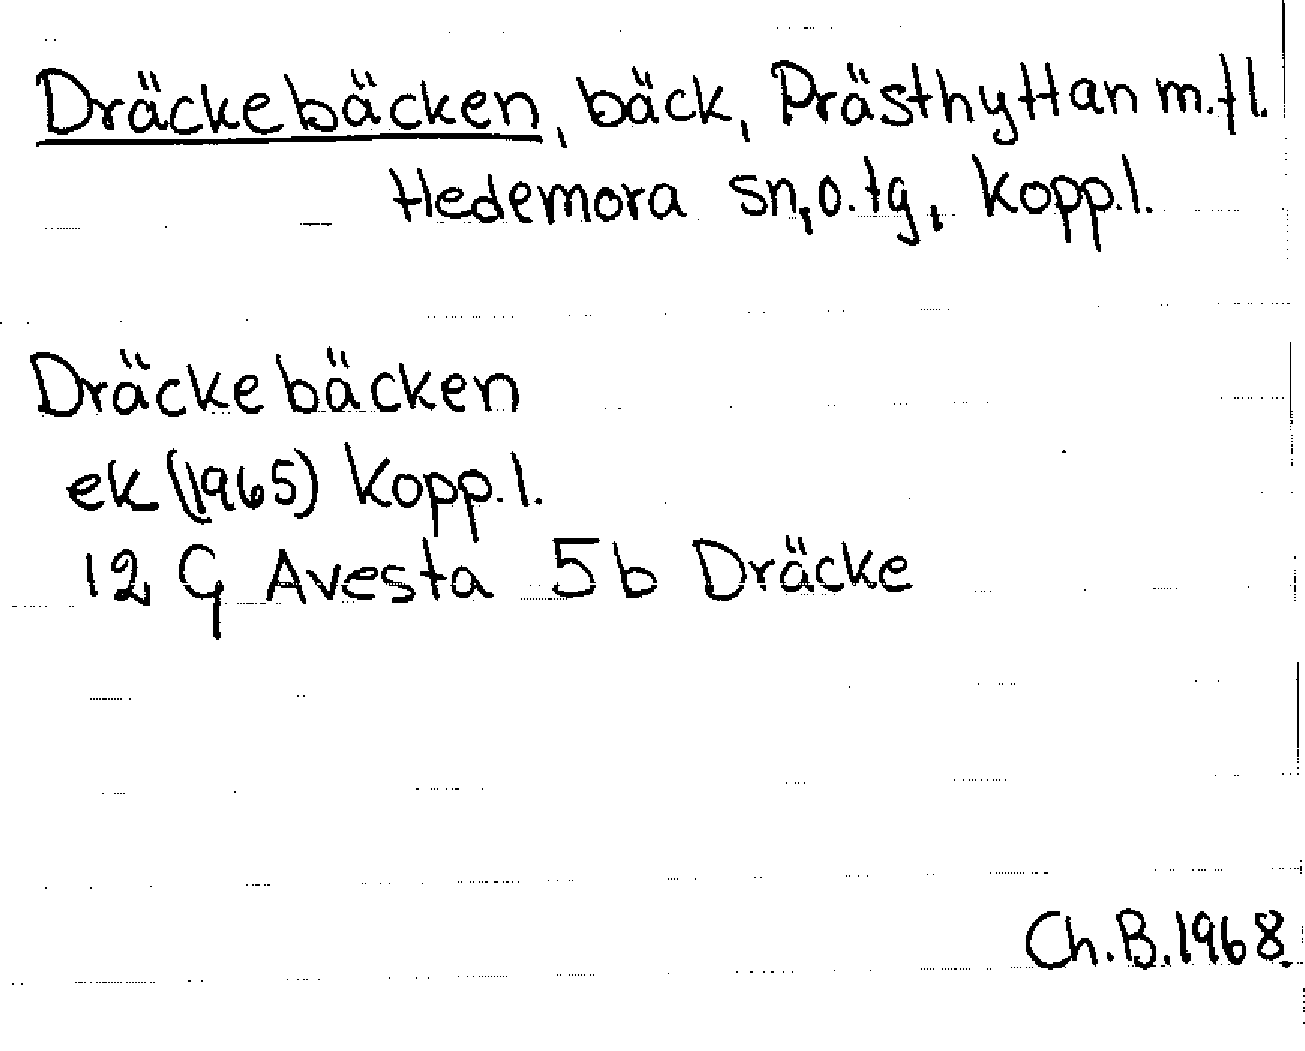 Dräckebäcken, bäck, Prästhyttan m.fl.
Hedemora sn, o. tg, Kopp.l.
Dräckebäcken
ek (1965) Kopp.l.
12 G Avesta 5b Dräcke
Ch.B.1968.